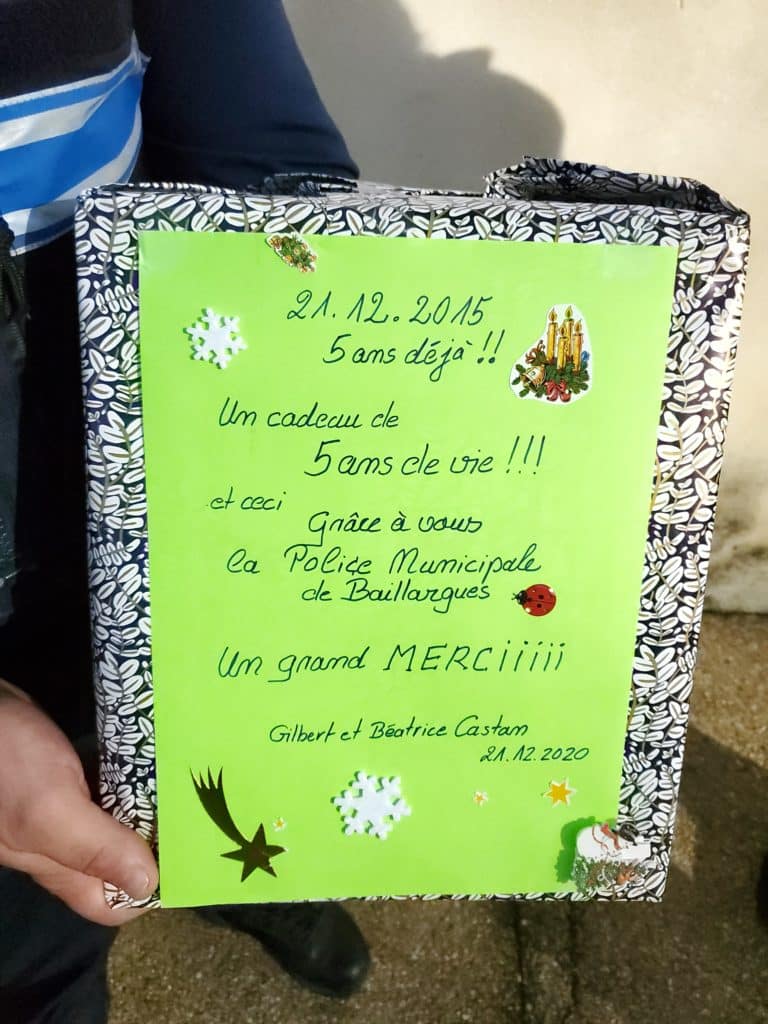 21.12.2015
5 ans déjà !!
Un cadeau de
5 ans de vie !!!
et ceci
Grâce à vous
la Police Municipale
de Baillargues
Un grand MERCiiiii
Gilbert et Béatrice Castan
21.12.2020